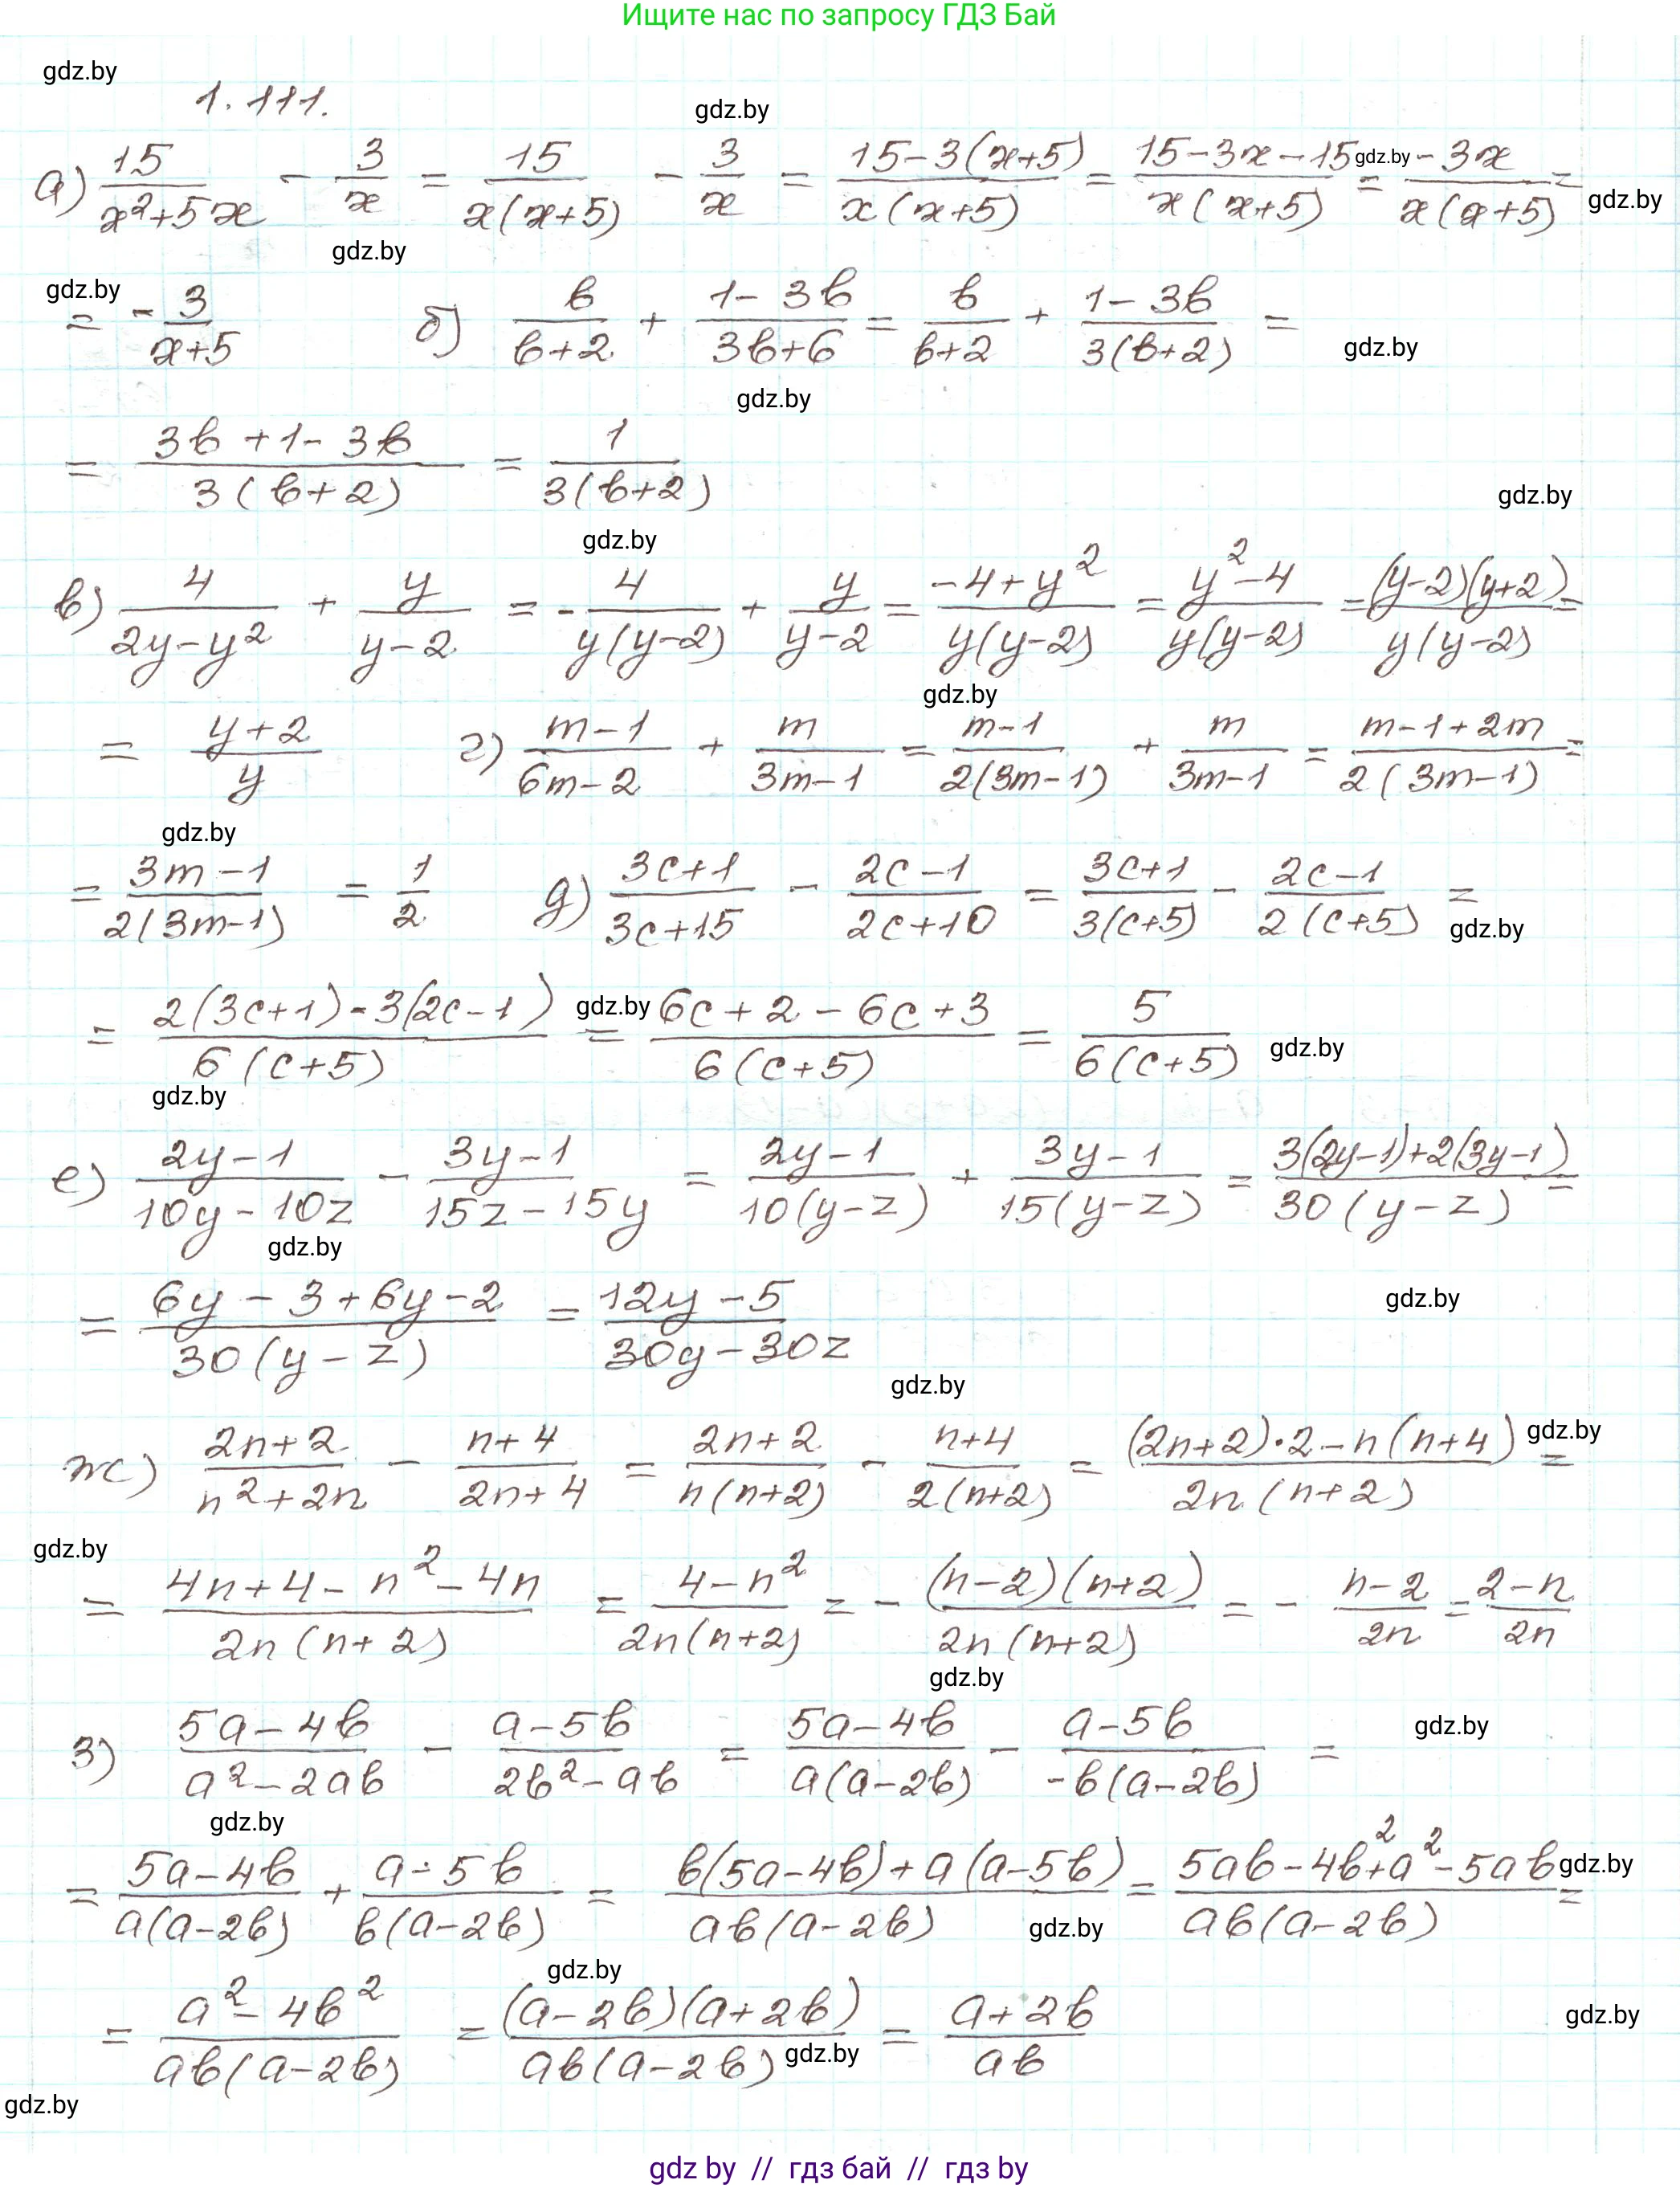 Ищите нас по запросу ГДЗ Бай
gdz.by
1.111.
gdz.by
а) 15/(x²+5x) - 3/x = 15/(x(x+5)) - 3/x = (15-3(x+5))/(x(x+5)) = (15-3x-15)/(x(x+5)) = (-3x)/(x(x+5)) =
gdz.by
gdz.by
gdz.by
gdz.by
= -3/(x+5) б) b/(b+2) + (1-3b)/(3b+6) = b/(b+2) + (1-3b)/(3(b+2)) =
gdz.by
gdz.by
= (3b+1-3b)/(3(b+2)) = 1/(3(b+2))
gdz.by
gdz.by
в) 4/(2y-y²) + y/(y-2) = -4/(y(y-2)) + y/(y-2) = (-4+y²)/(y(y-2)) = (y²-4)/(y(y-2)) = ((y-2)(y+2))/(y(y-2)) =
gdz.by
= (y+2)/y г) (m-1)/(6m-2) + m/(3m-1) = (m-1)/(2(3m-1)) + m/(3m-1) = (m-1+2m)/(2(3m-1)) =
gdz.by
= (3m-1)/(2(3m-1)) = 1/2 д) (3c+1)/(3c+15) - (2c-1)/(2c+10) = (3c+1)/(3(c+5)) - (2c-1)/(2(c+5)) =
gdz.by
= (2(3c+1)-3(2c-1))/(6(c+5)) = (6c+2-6c+3)/(6(c+5)) = 5/(6(c+5))
gdz.by
gdz.by
gdz.by
е) (2y-1)/(10y-10z) - (3y-1)/(15z-15y) = (2y-1)/(10(y-z)) + (3y-1)/(15(y-z)) = (3(2y-1)+2(3y-1))/(30(y-z)) =
gdz.by
= (6y-3+6y-2)/(30(y-z)) = (12y-5)/(30y-30z)
gdz.by
gdz.by
ж) (2n+2)/(n²+2n) - (n+4)/(2n+4) = (2n+2)/(n(n+2)) - (n+4)/(2(n+2)) = ((2n+2)·2-n(n+4))/(2n(n+2)) =
gdz.by
gdz.by
= (4n+4-n²-4n)/(2n(n+2)) = (4-n²)/(2n(n+2)) = -((n-2)(n+2))/(2n(n+2)) = -(n-2)/(2n) = (2-n)/(2n)
gdz.by
з) (5a-4b)/(a²-2ab) - (a-5b)/(2b²-ab) = (5a-4b)/(a(a-2b)) - (a-5b)/(-b(a-2b)) =
gdz.by
gdz.by
= (5a-4b)/(a(a-2b)) + (a-5b)/(b(a-2b)) = (b(5a-4b)+a(a-5b))/(ab(a-2b)) = (5ab-4b²+a²-5ab)/(ab(a-2b)) =
gdz.by
gdz.by
gdz.by
= (a²-4b²)/(ab(a-2b)) = ((a-2b)(a+2b))/(ab(a-2b)) = (a+2b)/(ab)
gdz.by
gdz.by
gdz.by
gdz by // гдз бай // гдз by